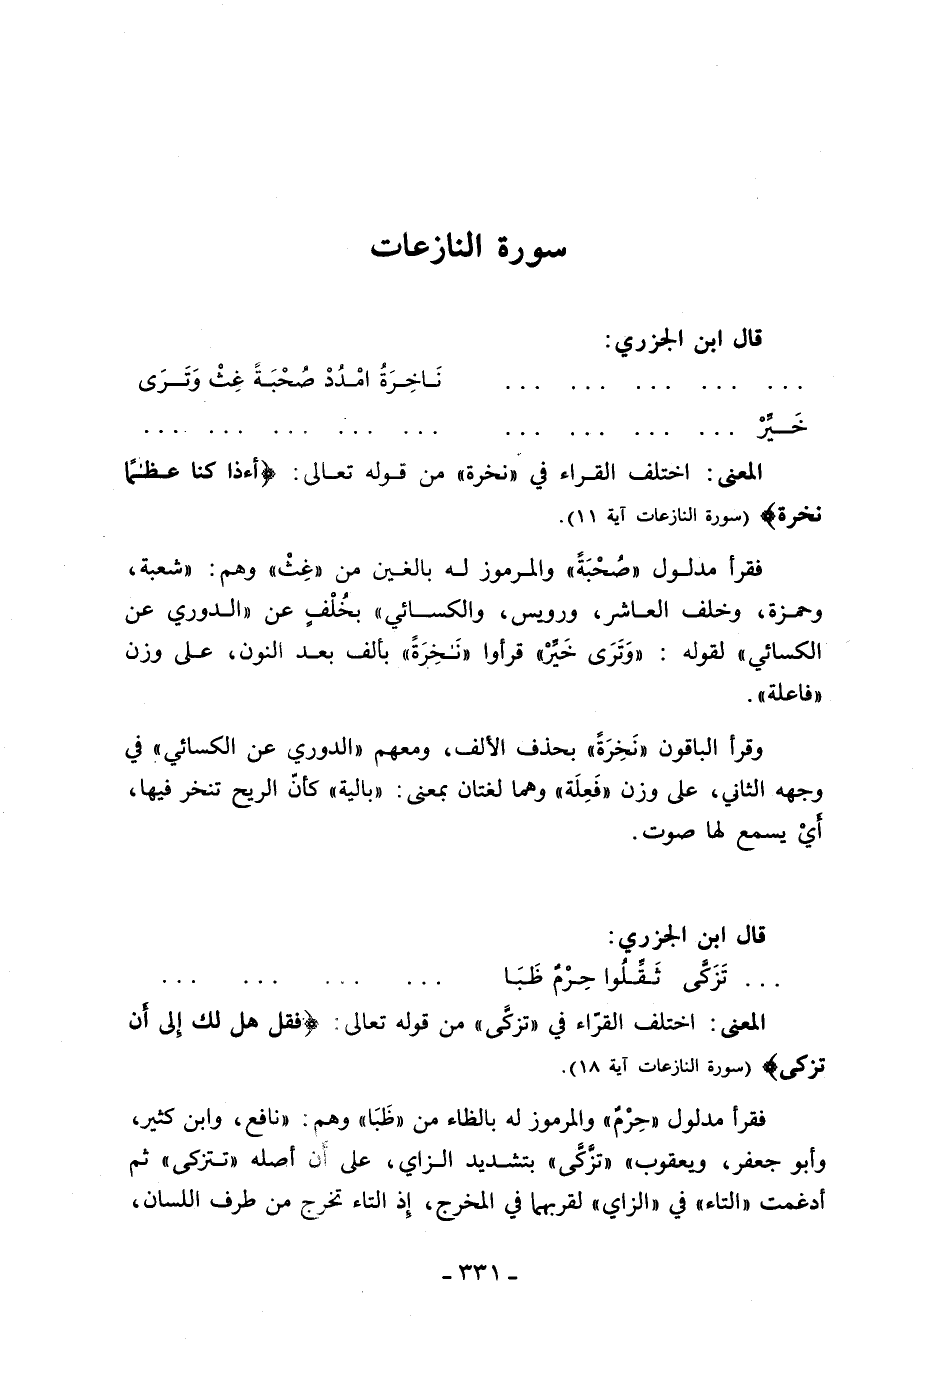 سورة النازعات
قال ابن الجزري:
... ... ... ... ... نَـاخِـرَةُ امْـدُدْ صُـحْبَـةً غِـثْ وَتَـــرَى
خَـــيِّرْ ... ... ... ... ... ... ... ... ...
المعنى: اختلف القـراء في «نخرة» من قـوله تعـالى: ﴿أءذا كنا عـظـٰمًا
نخرة﴾ (سورة النازعات آية ١١).
فقرأ مدلـول «صُحْبَةً» والمـرموز لـه بالغـين من «غِثْ» وهم: «شعبة،
وحمـزة، وخلف العـاشر، ورويس، والكسـائي» بخُلْفٍ عن «الـدوري عن
الكسائي» لقوله : «وَتَرَى خَيِّرْ» قرأوا «نَـٰخِرَةً» بألف بعـد النون، عـلى وزن
«فاعلة».
وقرأ الباقون «نَخِرَةً» بحذف الألف، ومعهم «الدوري عن الكسائي» في
وجهه الثاني، على وزن «فَعِلَة» وهما لغتان بمعنى: «بالية» كأنّ الريح تنخر فيها،
أَيْ يسمع لها صوت.
قال ابن الجزري:
... تَزَكَّى ثَـقِّـلُوا حِـرْمٌ ظَبَـا ... ... ... ...
المعنى: اختلف القرّاء في «تزكَّى» من قوله تعالى: ﴿فقل هل لك إلى أَن
تزكى﴾ (سورة النازعات آية ١٨).
فقرأ مدلول «حِرْمٌ» والمرموز له بالظاء من «ظَبَا» وهم: «نافع، وابن كثير،
وأبو جعفر، ويعقوب» «تزَّكَّى» بتشـديد الـزاي، على أن أصله «تـتزكى» ثم
أدغمت «التاء» في «الزاي» لقربهما في المخرج، إذ التاء تخرج من طرف اللسان،
- ٣٣١ -